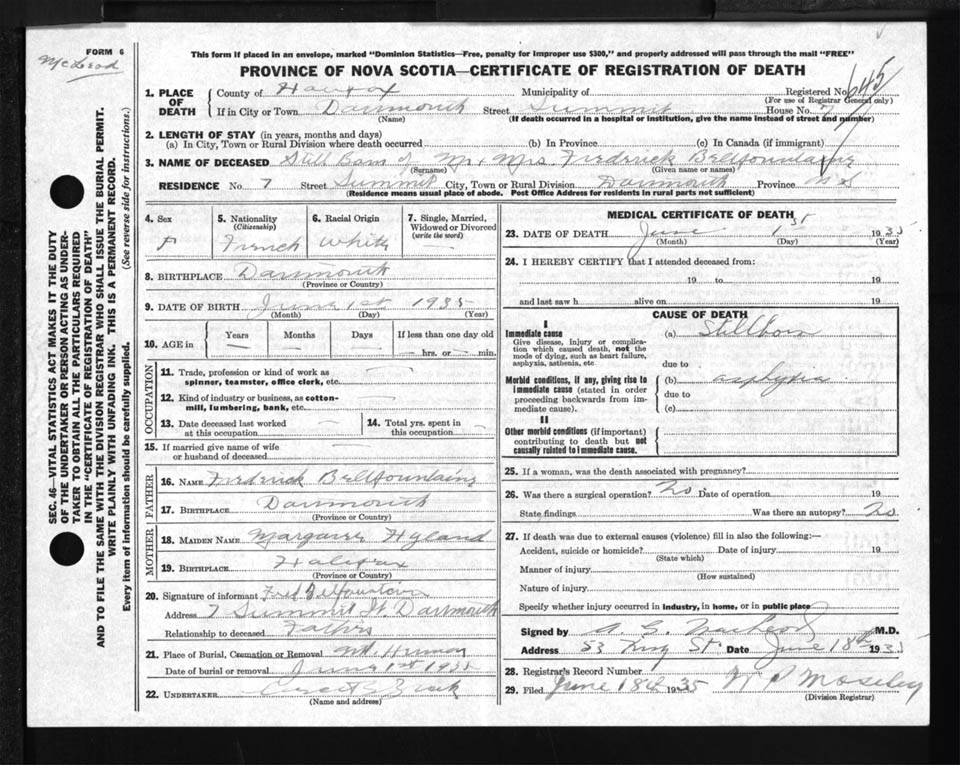 FORM 6
McLeod
This form if placed in an envelope, marked "Dominion Statistics—Free, penalty for improper use $300," and properly addressed will pass through the mail "FREE"
PROVINCE OF NOVA SCOTIA—CERTIFICATE OF REGISTRATION OF DEATH
1. PLACE OF DEATH County of Halifax Municipality of Registered No. 645
(For use of Registrar General only)
If in City or Town Dartmouth Street Summit House No. 7
(Name) (If death occurred in a hospital or institution, give the name instead of street and number)
2. LENGTH OF STAY (in years, months and days)
(a) In City, Town or Rural Division where death occurred (b) In Province (c) In Canada (if immigrant)
3. NAME OF DECEASED Still Born of Mr & Mrs. Fredrick Bellfountaine
(Surname) (Given name or names)
RESIDENCE No. 7 Street Summit City, Town or Rural Division Dartmouth Province N S
(Residence means usual place of abode. Post Office Address for residents in rural parts not sufficient)
4. Sex F
5. Nationality (Citizenship) French
6. Racial Origin White
7. Single, Married, Widowed or Divorced (write the word) —
8. BIRTHPLACE Dartmouth
(Province or Country)
9. DATE OF BIRTH June 1st 1935
(Month) (Day) (Year)
10. AGE in Years — Months — Days — If less than one day old — hrs. or — min.
OCCUPATION
11. Trade, profession or kind of work as spinner, teamster, office clerk, etc. —
12. Kind of industry or business, as cotton-mill, lumbering, bank, etc. —
13. Date deceased last worked at this occupation —
14. Total yrs. spent in this occupation —
15. If married give name of wife or husband of deceased —
FATHER
16. NAME Fredrick Bellfountaine
17. BIRTHPLACE Dartmouth
(Province or Country)
MOTHER
18. MAIDEN NAME Margaret Hyland
19. BIRTHPLACE Halifax
(Province or Country)
20. Signature of informant Fred Belfountain
Address 7 Summit St. Dartmouth
Relationship to deceased Father
21. Place of Burial, Cremation or Removal Mt. Hermon
Date of burial or removal June 1st 1935
22. UNDERTAKER
(Name and address)
MEDICAL CERTIFICATE OF DEATH
23. DATE OF DEATH June 1st 1935
(Month) (Day) (Year)
24. I HEREBY CERTIFY that I attended deceased from:
19 to 19
and last saw h alive on 19
CAUSE OF DEATH
I
Immediate cause
Give disease, injury or complication which caused death, not the mode of dying, such as heart failure, asphyxia, asthenia, etc.
(a) Stillborn
due to
Morbid conditions, if any, giving rise to immediate cause (stated in order proceeding backwards from immediate cause).
(b) asphyxia
due to
(c)
II
Other morbid conditions (if important) contributing to death but not causally related to immediate cause.
25. If a woman, was the death associated with pregnancy?
26. Was there a surgical operation? No Date of operation 19
State findings Was there an autopsy? No
27. If death was due to external causes (violence) fill in also the following:—
Accident, suicide or homicide? Date of injury 19
(State which)
Manner of injury
(How sustained)
Nature of injury
Specify whether injury occurred in industry, in home, or in public place
Signed by A G MacLeod M.D.
Address 53 King St. Date June 18th 1935
28. Registrar's Record Number
29. Filed June 18th 1935 Moseley
(Division Registrar)
SEC. 46—VITAL STATISTICS ACT MAKES IT THE DUTY OF THE UNDERTAKER OR PERSON ACTING AS UNDERTAKER TO OBTAIN ALL THE PARTICULARS REQUIRED IN THE "CERTIFICATE OF REGISTRATION OF DEATH" AND TO FILE THE SAME WITH THE DIVISION REGISTRAR WHO SHALL ISSUE THE BURIAL PERMIT.
WRITE PLAINLY WITH UNFADING INK. THIS IS A PERMANENT RECORD.
Every item of information should be carefully supplied. (See reverse side for instructions.)